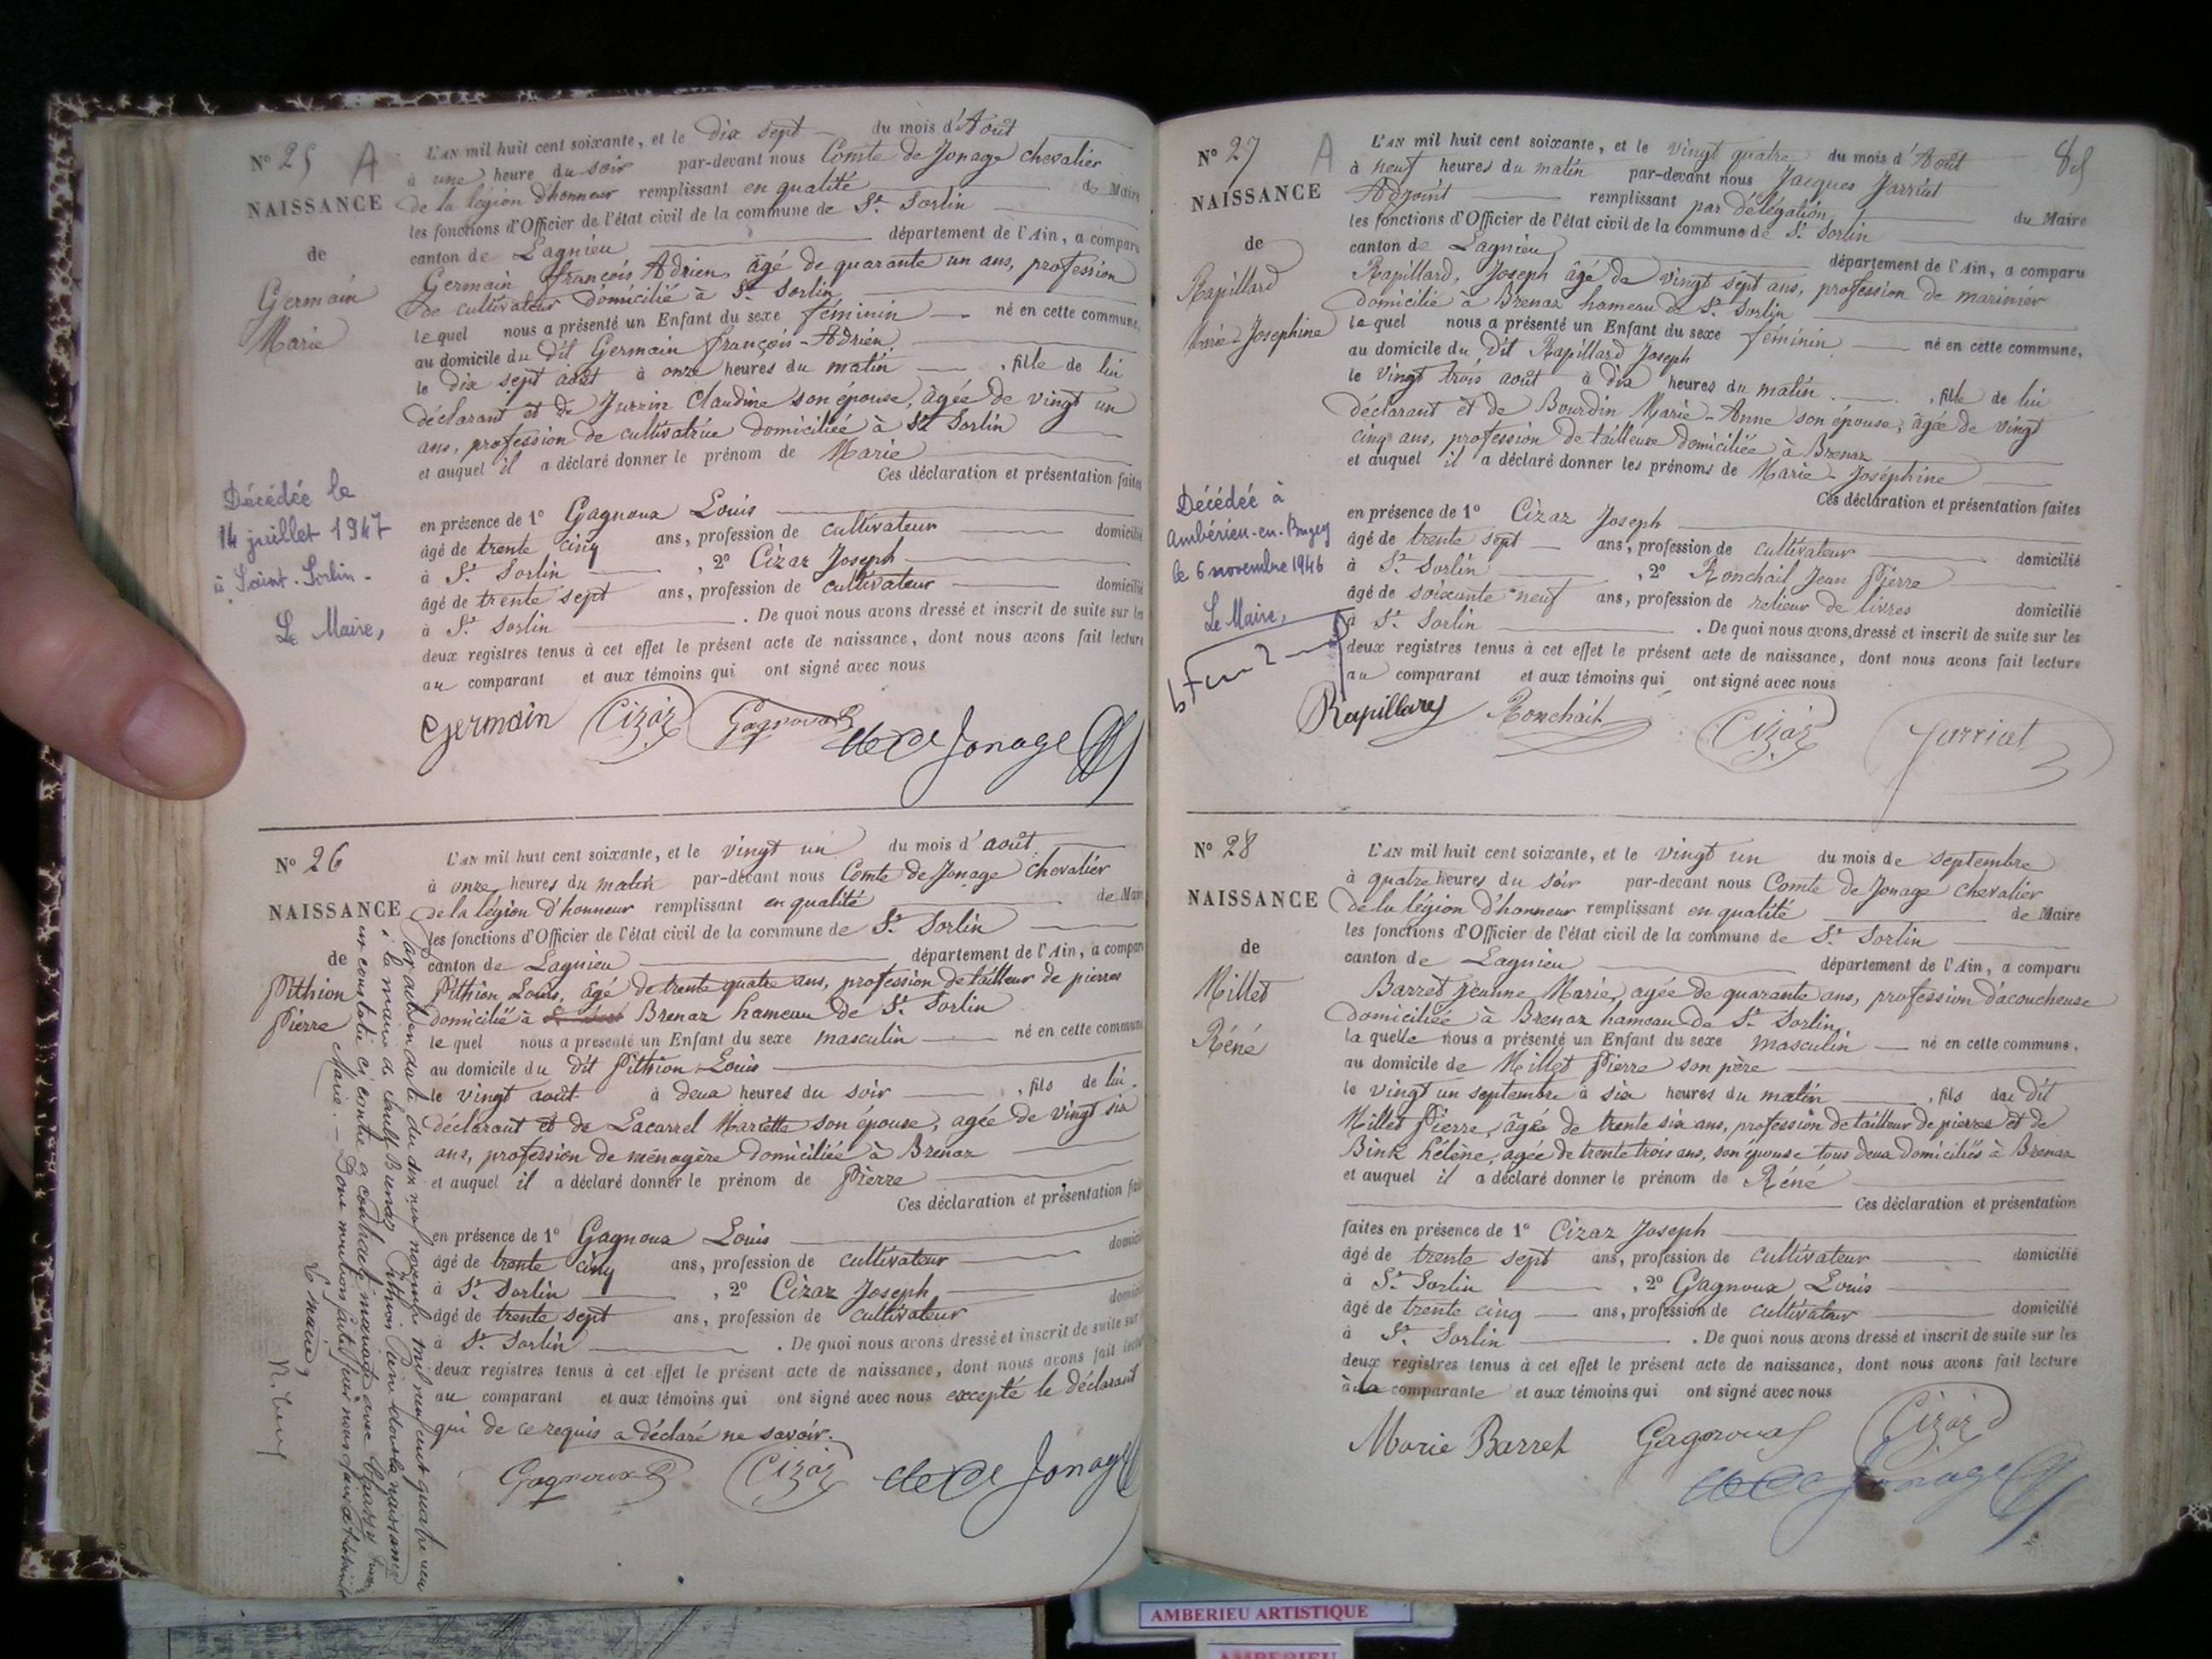 N° 25 A
NAISSANCE
de
Germain
Marie
Décédée le
14 juillet 1947
à Saint-Sorlin-
Le Maire,
L'AN mil huit cent soixante, et le dix sept du mois d'Août
à une heure du soir par-devant nous Comte de Jonage chevalier
de la légion d'honneur remplissant en qualité de Maire
les fonctions d'Officier de l'état civil de la commune de St Sorlin
canton de Lagnieu département de l'Ain, a comparu
Germain françois Adrien, âgé de quarante un ans, profession
de cultivateur domicilié à St Sorlin
lequel nous a présenté un Enfant du sexe féminin né en cette commune,
au domicile du dit Germain françois-Adrien
le dix sept août à onze heures du matin, fille de lui
déclarant et de Jurrin Claudine son épouse, âgée de vingt un
ans, profession de cultivatrice domiciliée à St Sorlin
et auquel il a déclaré donner le prénom de Marie
Ces déclaration et présentation faites
en présence de 1° Gagnoux Louis
âgé de trente cinq ans, profession de cultivateur domicilié
à St Sorlin, 2° Cizaz Joseph
âgé de trente sept ans, profession de cultivateur domicilié
à St Sorlin. De quoi nous avons dressé et inscrit de suite sur les
deux registres tenus à cet effet le présent acte de naissance, dont nous avons fait lecture
au comparant et aux témoins qui ont signé avec nous
Germain Cizaz Gagnoux de Jonage
N° 26
NAISSANCE
de
Pithion
Pierre
L'AN mil huit cent soixante, et le vingt un du mois d'août
à onze heures du matin par-devant nous Comte de Jonage chevalier
de la légion d'honneur remplissant en qualité de Maire
les fonctions d'Officier de l'état civil de la commune de St Sorlin
canton de Lagnieu département de l'Ain, a comparu
Pithion Louis, âgé de trente quatre ans, profession de tailleur de pierres
domicilié à Brenaz hameau de St Sorlin
lequel nous a présenté un Enfant du sexe masculin né en cette commune
au domicile du dit Pithion Louis
le vingt août à deux heures du soir, fils de lui
déclarant et de Lacarrel Mariette son épouse, agée de vingt six
ans, profession de ménagère domiciliée à Brenaz
et auquel il a déclaré donner le prénom de Pierre
Ces déclaration et présentation faites
en présence de 1° Gagnoux Louis
âgé de trente cinq ans, profession de cultivateur domicilié
à St Sorlin, 2° Cizaz Joseph
âgé de trente sept ans, profession de cultivateur domicilié
à St Sorlin. De quoi nous avons dressé et inscrit de suite sur
deux registres tenus à cet effet le présent acte de naissance, dont nous avons fait lecture
au comparant et aux témoins qui ont signé avec nous excepté le déclarant
qui de ce requis a déclaré ne savoir.
Gagnoux Cizaz de Jonage
Par acte en date du dix neuf novembre mil neuf cent quatre reçu
à la mairie de Sault-Brenaz Pithion Pierre dont la naissance
est constatée ci contre a contracté mariage avec
Marie. Dont mention faite par nous
Le maire,
N° 27 A
85
NAISSANCE
de
Rapillard
Marie-Josephine
Décédée à
Ambérieu-en-Bugey
le 6 novembre 1946
Le Maire,
L'AN mil huit cent soixante, et le vingt quatre du mois d'Août
à neuf heures du matin par-devant nous Jacques Jarriat
Adjoint remplissant par délégation du Maire
les fonctions d'Officier de l'état civil de la commune de St Sorlin
canton de Lagnieu département de l'Ain, a comparu
Rapillard, Joseph âgé de vingt sept ans, profession de marinier
domicilié à Brenaz hameau de St Sorlin
lequel nous a présenté un Enfant du sexe féminin né en cette commune,
au domicile du dit Rapillard Joseph
le vingt trois août à dix heures du matin, fille de lui
déclarant et de Bourdin Marie-Anne son épouse, âgée de vingt
cinq ans, profession de tailleuse domiciliée à Brenaz
et auquel il a déclaré donner les prénoms de Marie-Joséphine
Ces déclaration et présentation faites
en présence de 1° Cizaz Joseph
âgé de trente sept ans, profession de cultivateur domicilié
à St Sorlin, 2° Ronchail Jean Pierre
âgé de soixante neuf ans, profession de relieur de livres domicilié
à St Sorlin. De quoi nous avons dressé et inscrit de suite sur les
deux registres tenus à cet effet le présent acte de naissance, dont nous avons fait lecture
au comparant et aux témoins qui ont signé avec nous
Rapillard Ronchail Cizaz Jarriat
N° 28
NAISSANCE
de
Millet
Réné
L'AN mil huit cent soixante, et le vingt un du mois de septembre
à quatre heures du soir par-devant nous Comte de Jonage chevalier
de la légion d'honneur remplissant en qualité de Maire
les fonctions d'Officier de l'état civil de la commune de St Sorlin
canton de Lagnieu département de l'Ain, a comparu
Barret Jeanne Marie, agée de quarante ans, profession d'acoucheuse
domiciliée à Brenaz hameau de St Sorlin,
la quelle nous a présenté un Enfant du sexe masculin né en cette commune.
au domicile de Millet Pierre son père
le vingt un septembre à six heures du matin, fils du dit
Millet Pierre, âgée de trente six ans, profession de tailleur de pierres et de
Bink hélène, agée de trente trois ans, son épouse tous deux domiciliés à Brenaz
et auquel il a déclaré donner le prénom de Réné
Ces déclaration et présentation
faites en présence de 1° Cizaz Joseph
âgé de trente sept ans, profession de cultivateur domicilié
à St Sorlin, 2° Gagnoux Louis
âgé de trente cinq ans, profession de cultivateur domicilié
à St Sorlin. De quoi nous avons dressé et inscrit de suite sur les
deux registres tenus à cet effet le présent acte de naissance, dont nous avons fait lecture
à la comparante et aux témoins qui ont signé avec nous
Marie Barret Gagnoux Cizaz
de Jonage
AMBERIEU ARTISTIQUE
AMBERIEU